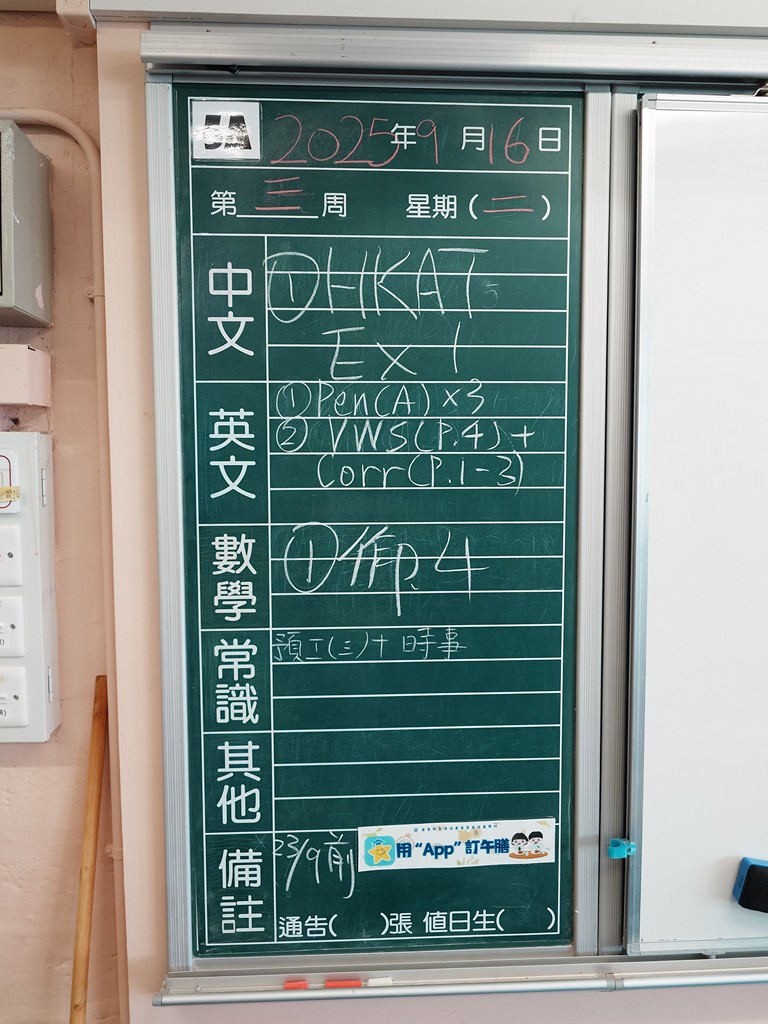 5A
2025年9月16日
第三周 星期(二)
中文
①HKAT
Ex 1
英文
①Pen(A)×3
②VWS(P.4)+
Corr(P.1-3)
數學
①作P.4
常識
預工(三)+時事
其他
備註
23/9前
用“App”訂午膳
通告( )張 值日生( )